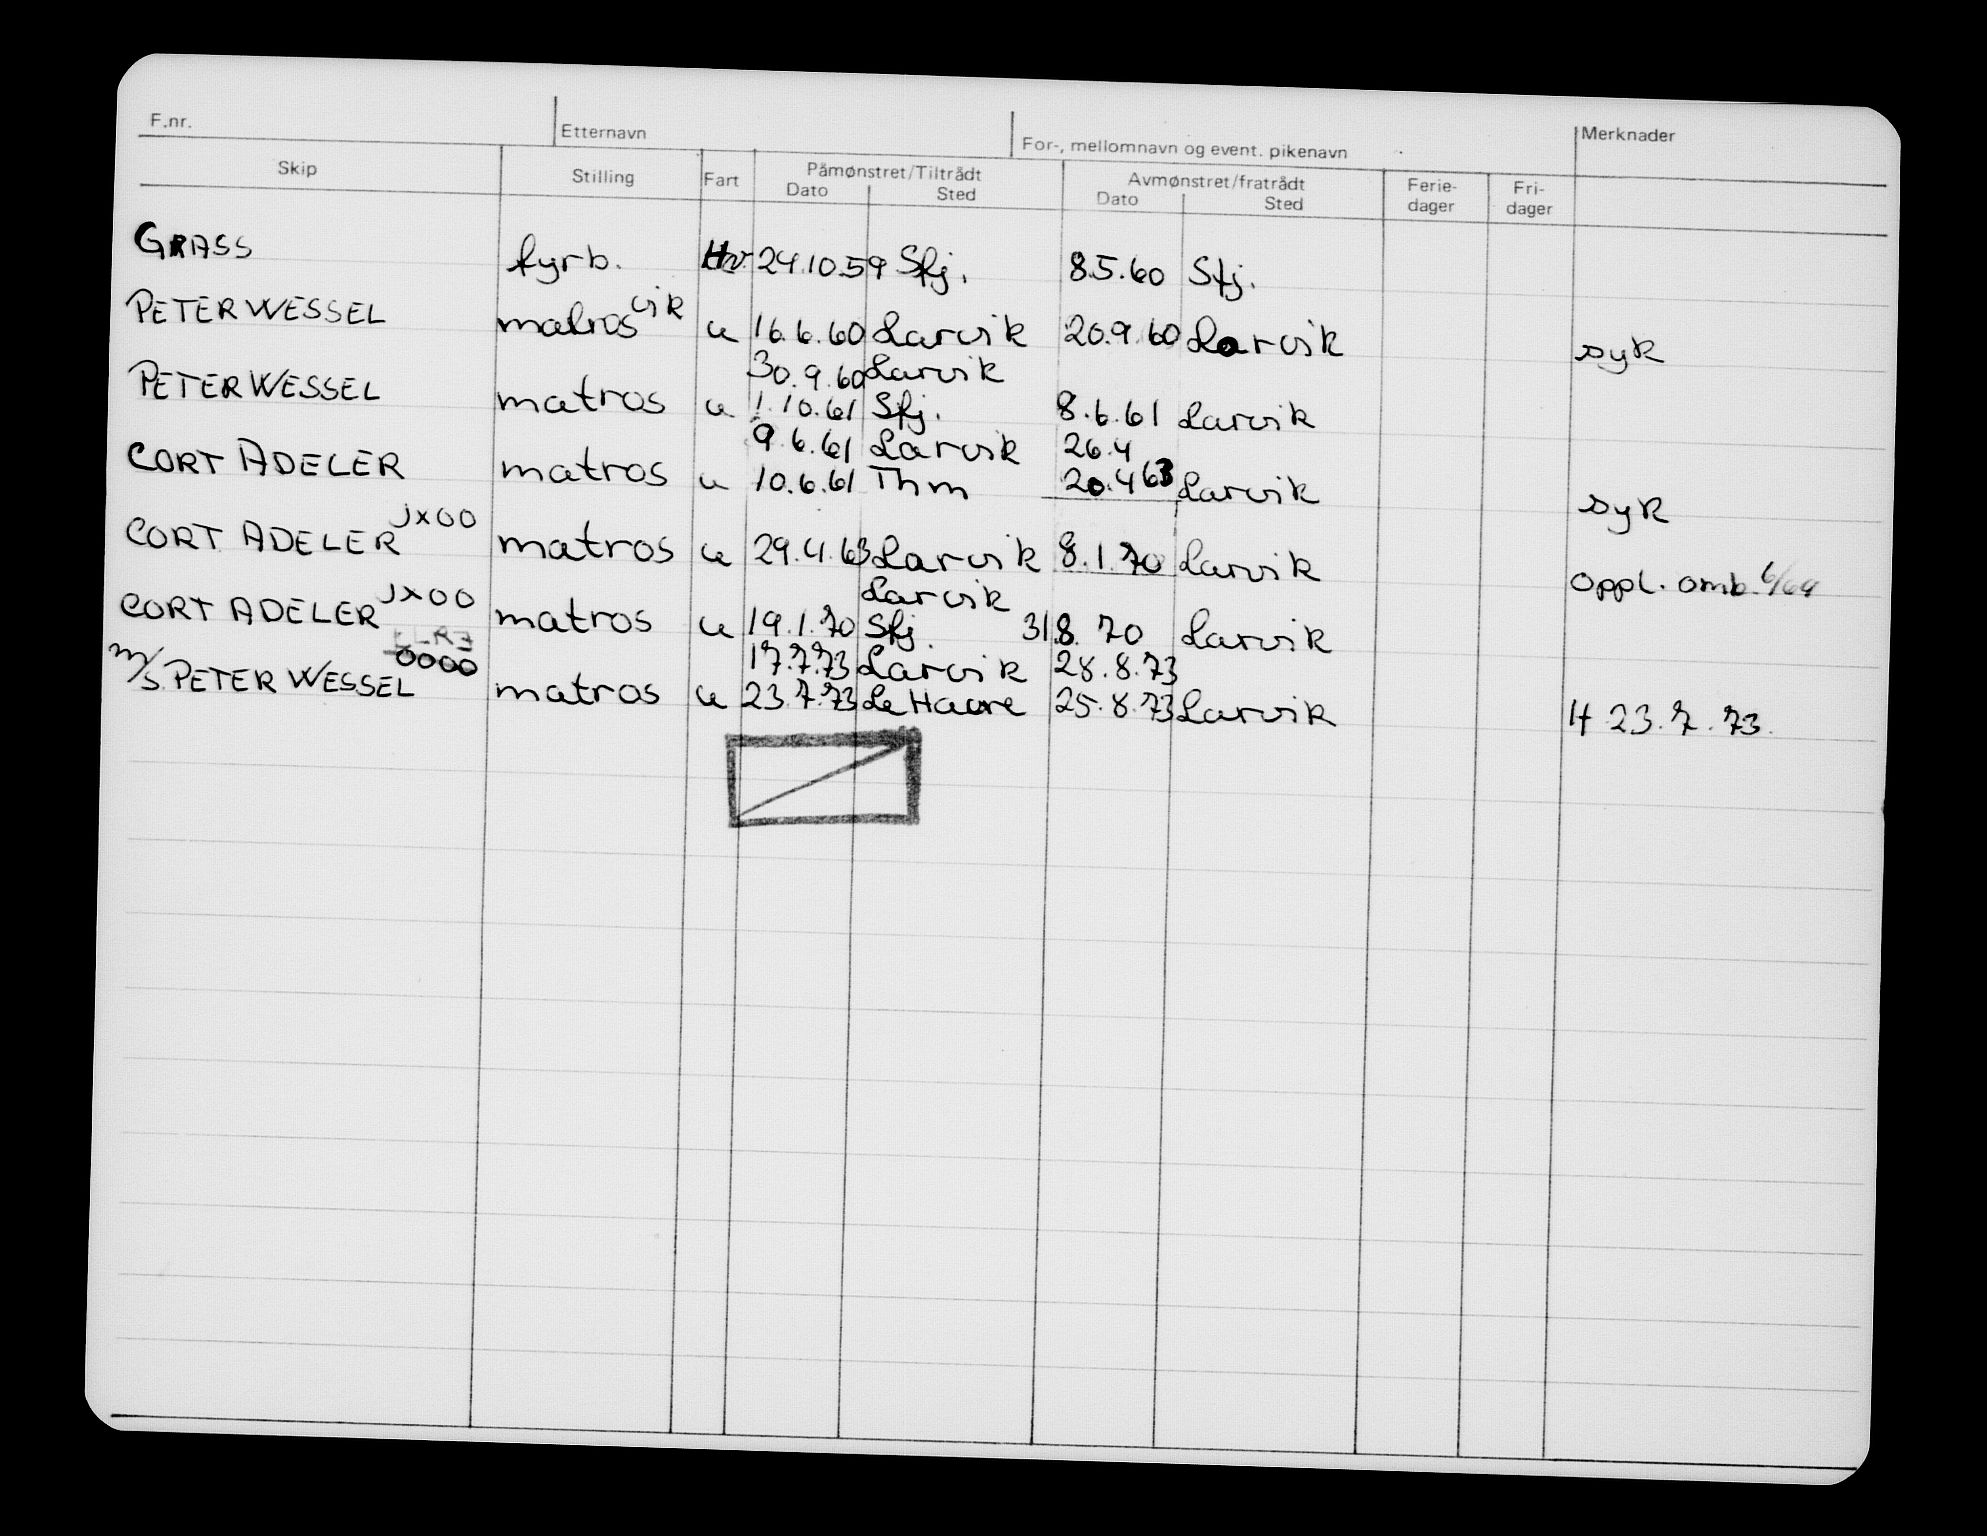 F.nr. Etternavn For-, mellomnavn og event. pikenavn Merknader
Skip Stilling Fart Påmønstret/Tiltrådt Avmønstret/fratrådt Ferie- Fri-
Dato Sted Dato Sted dager dager
GRASS fyrb. Hv. 24.10.59 Sfj. 8.5.60 Sfj.
PETER WESSEL matros vik u 16.6.60 Larvik 20.9.60 Larvik syk
30.9.60 Larvik
PETER WESSEL matros u 1.10.61 Sfj. 8.6.61 Larvik
9.6.61 Larvik 26.4
CORT ADELER matros u 10.6.61 Thm 20.4 63 Larvik syk
JX00
CORT ADELER matros u 29.4.63 Larvik 8.1.70 Larvik oppl. omb. 6/64
JX00 Larvik
CORT ADELER matros u 19.1.70 Sfj. 31 8. 70 Larvik
0000 17.7.73 Larvik 28.8.73
m/s. PETER WESSEL matros u 23.7.73 Le Havre 25.8.73 Larvik H 23.7.73.